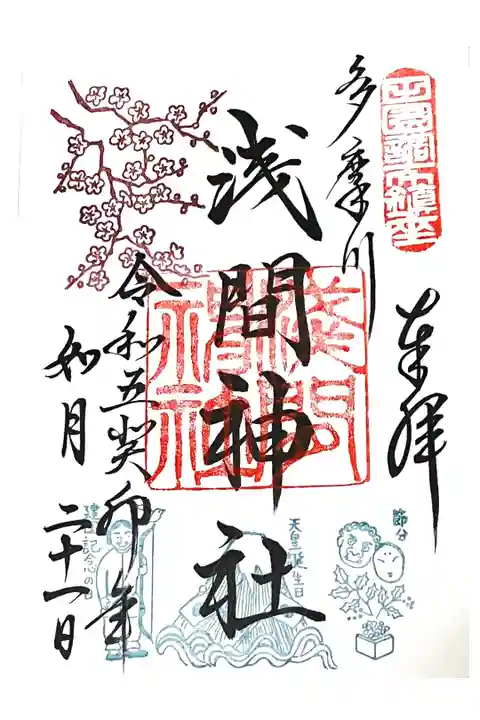 田園調布鎮座
奉拝
多摩川
浅間神社
浅間神社
令和五癸卯年
如月
二十一日
節分
天皇誕生日
建国記念の